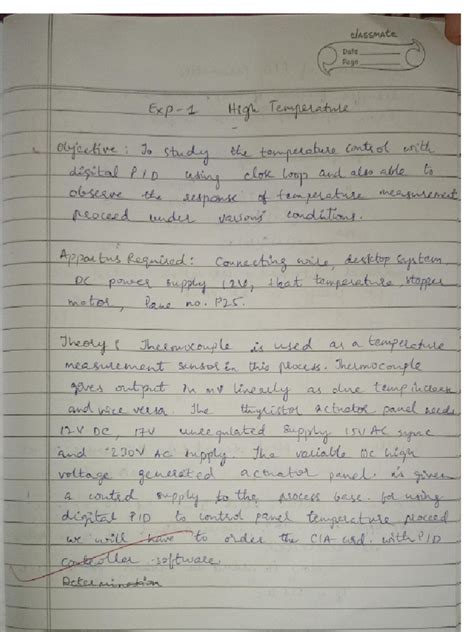 classmate
Date
Page
Exp-1 High Temperature
Objective : To study the temperature control with
digital PID using close loop and also able to
observe the response of temperature measurement
proceed under various conditions.
Apparatus Required : Connecting wire, desktop system
DC power supply 12V, that temperature, stopper
motor, Pane no. P25.
Theory : Thermocouple is used as a temperature
measurement sensor in this process. Thermocouple
gives output in mV linearly as due temp increase
and vice versa. The thyristor actuator panel needs
12V DC, 17V unregulated supply 15V AC sync
and 230V AC supply. The variable DC high
voltage generated actuator panel. is given
a control supply to the process base. for using
digital PID to control panel temperature proceed
we will have to order the CIA card with PID
controller software.
Determination